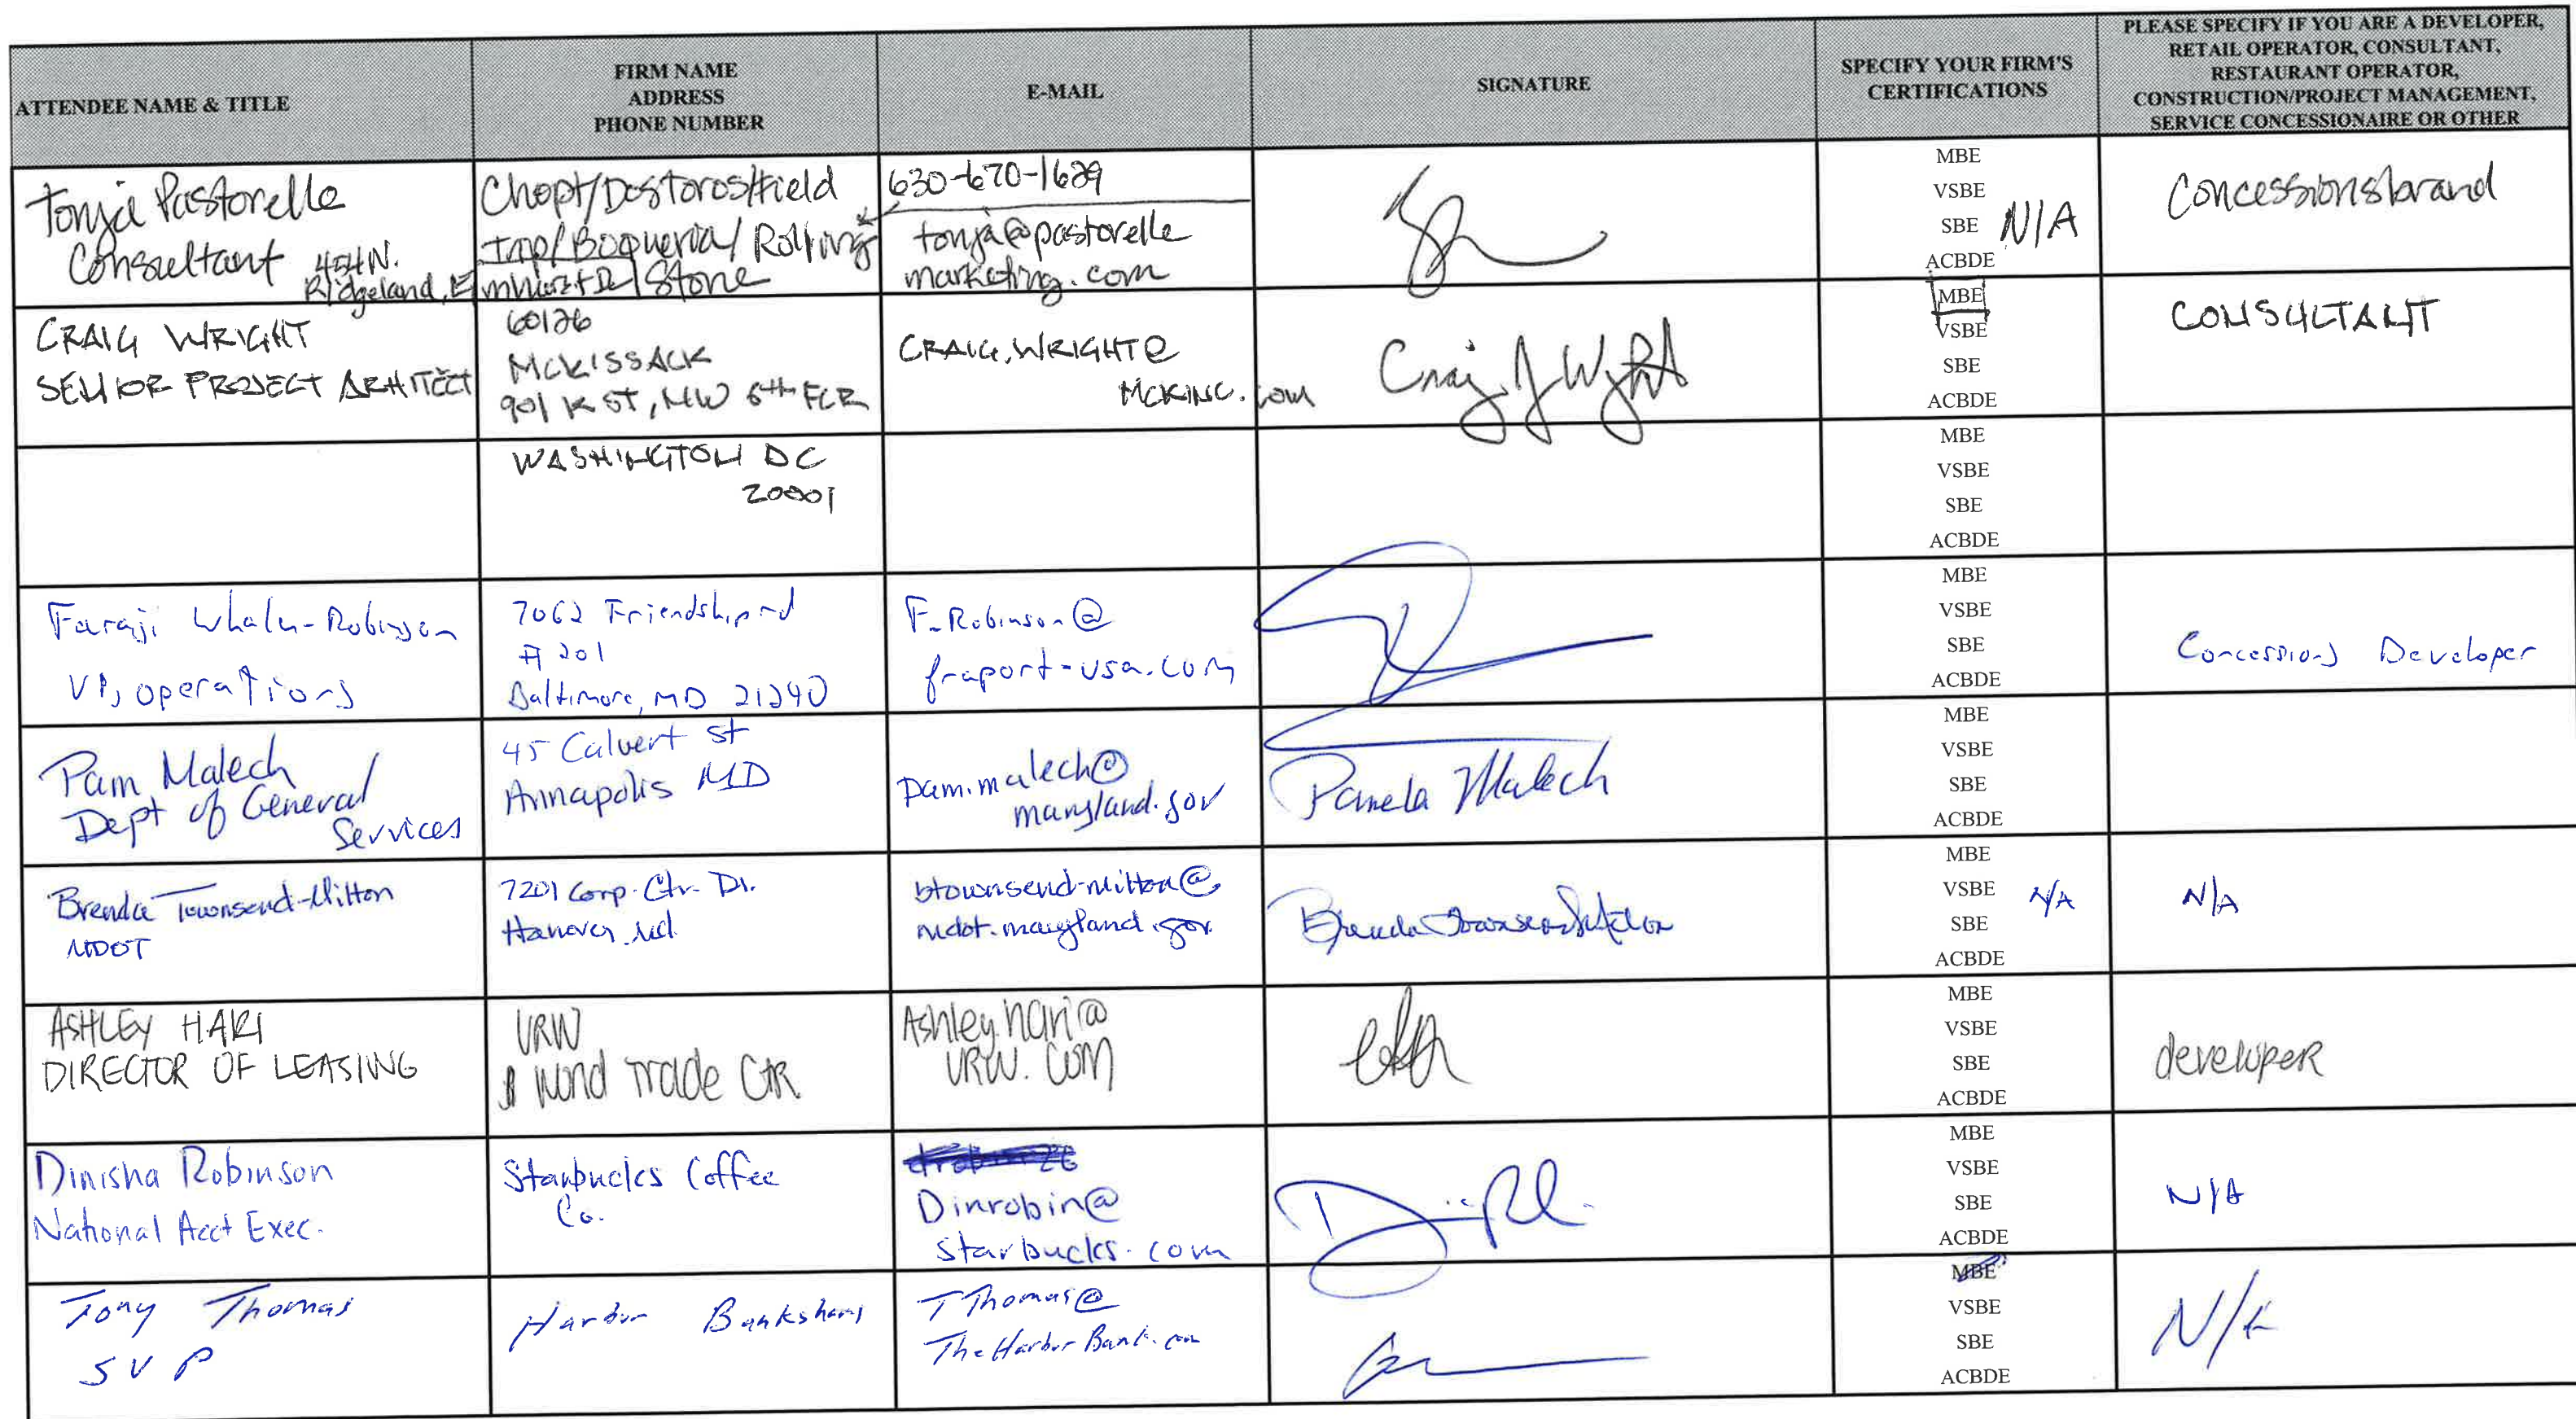 ATTENDEE NAME & TITLE
FIRM NAME
ADDRESS
PHONE NUMBER
E-MAIL
SIGNATURE
SPECIFY YOUR FIRM'S
CERTIFICATIONS
PLEASE SPECIFY IF YOU ARE A DEVELOPER,
RETAIL OPERATOR, CONSULTANT,
RESTAURANT OPERATOR,
CONSTRUCTION/PROJECT MANAGEMENT,
SERVICE CONCESSIONAIRE OR OTHER
Tonja Pastorelle
Consultant 454 N.
Ridgeland, Elmhurst IL
60126
Chopt/DosToros/Field
/Boqueria/Rolling
Stone
630-670-1629
tonja@pastorelle
marketing.com
MBE
VSBE
SBE N/A
ACBDE
Concessions brand
CRAIG WRIGHT
SENIOR PROJECT ARHITECT
MCKISSACK
901 K ST, NW 6th FLR
WASHINGTON DC
20001
CRAIG.WRIGHT@
MCKINC.com
Craig J Wright
MBE
VSBE
SBE
ACBDE
CONSULTANT
MBE
VSBE
SBE
ACBDE
Faraji Whalen-Robinson
VP, operations
7062 Friendship rd
# 201
Baltimore, MD 21240
F.Robinson@
fraport-usa.com
MBE
VSBE
SBE
ACBDE
Concessions Developer
Pam Malech
Dept of General
Services
45 Calvert St
Annapolis MD
pam.malech@
maryland.gov
Pamela Malech
MBE
VSBE
SBE
ACBDE
Brenda Townsend-Milton
MDOT
7201 Corp. Ctr. Dr.
Hanover, Md.
btownsend-milton@
mdot.maryland.gov
Brenda Townsend-Milton
MBE
VSBE N/A
SBE
ACBDE
N/A
ASHLEY HARI
DIRECTOR OF LEASING
URW
World Trade CTR
Ashley.hari@
URW.COM
MBE
VSBE
SBE
ACBDE
developer
Dinisha Robinson
National Acct Exec.
Starbucks Coffee
Co.
Dinrobin@
starbucks.com
MBE
VSBE
SBE
ACBDE
N/A
Tony Thomas
SVP
Harbor Bankshares
TThomas@
TheHarborBank.com
MBE
VSBE
SBE
ACBDE
N/A